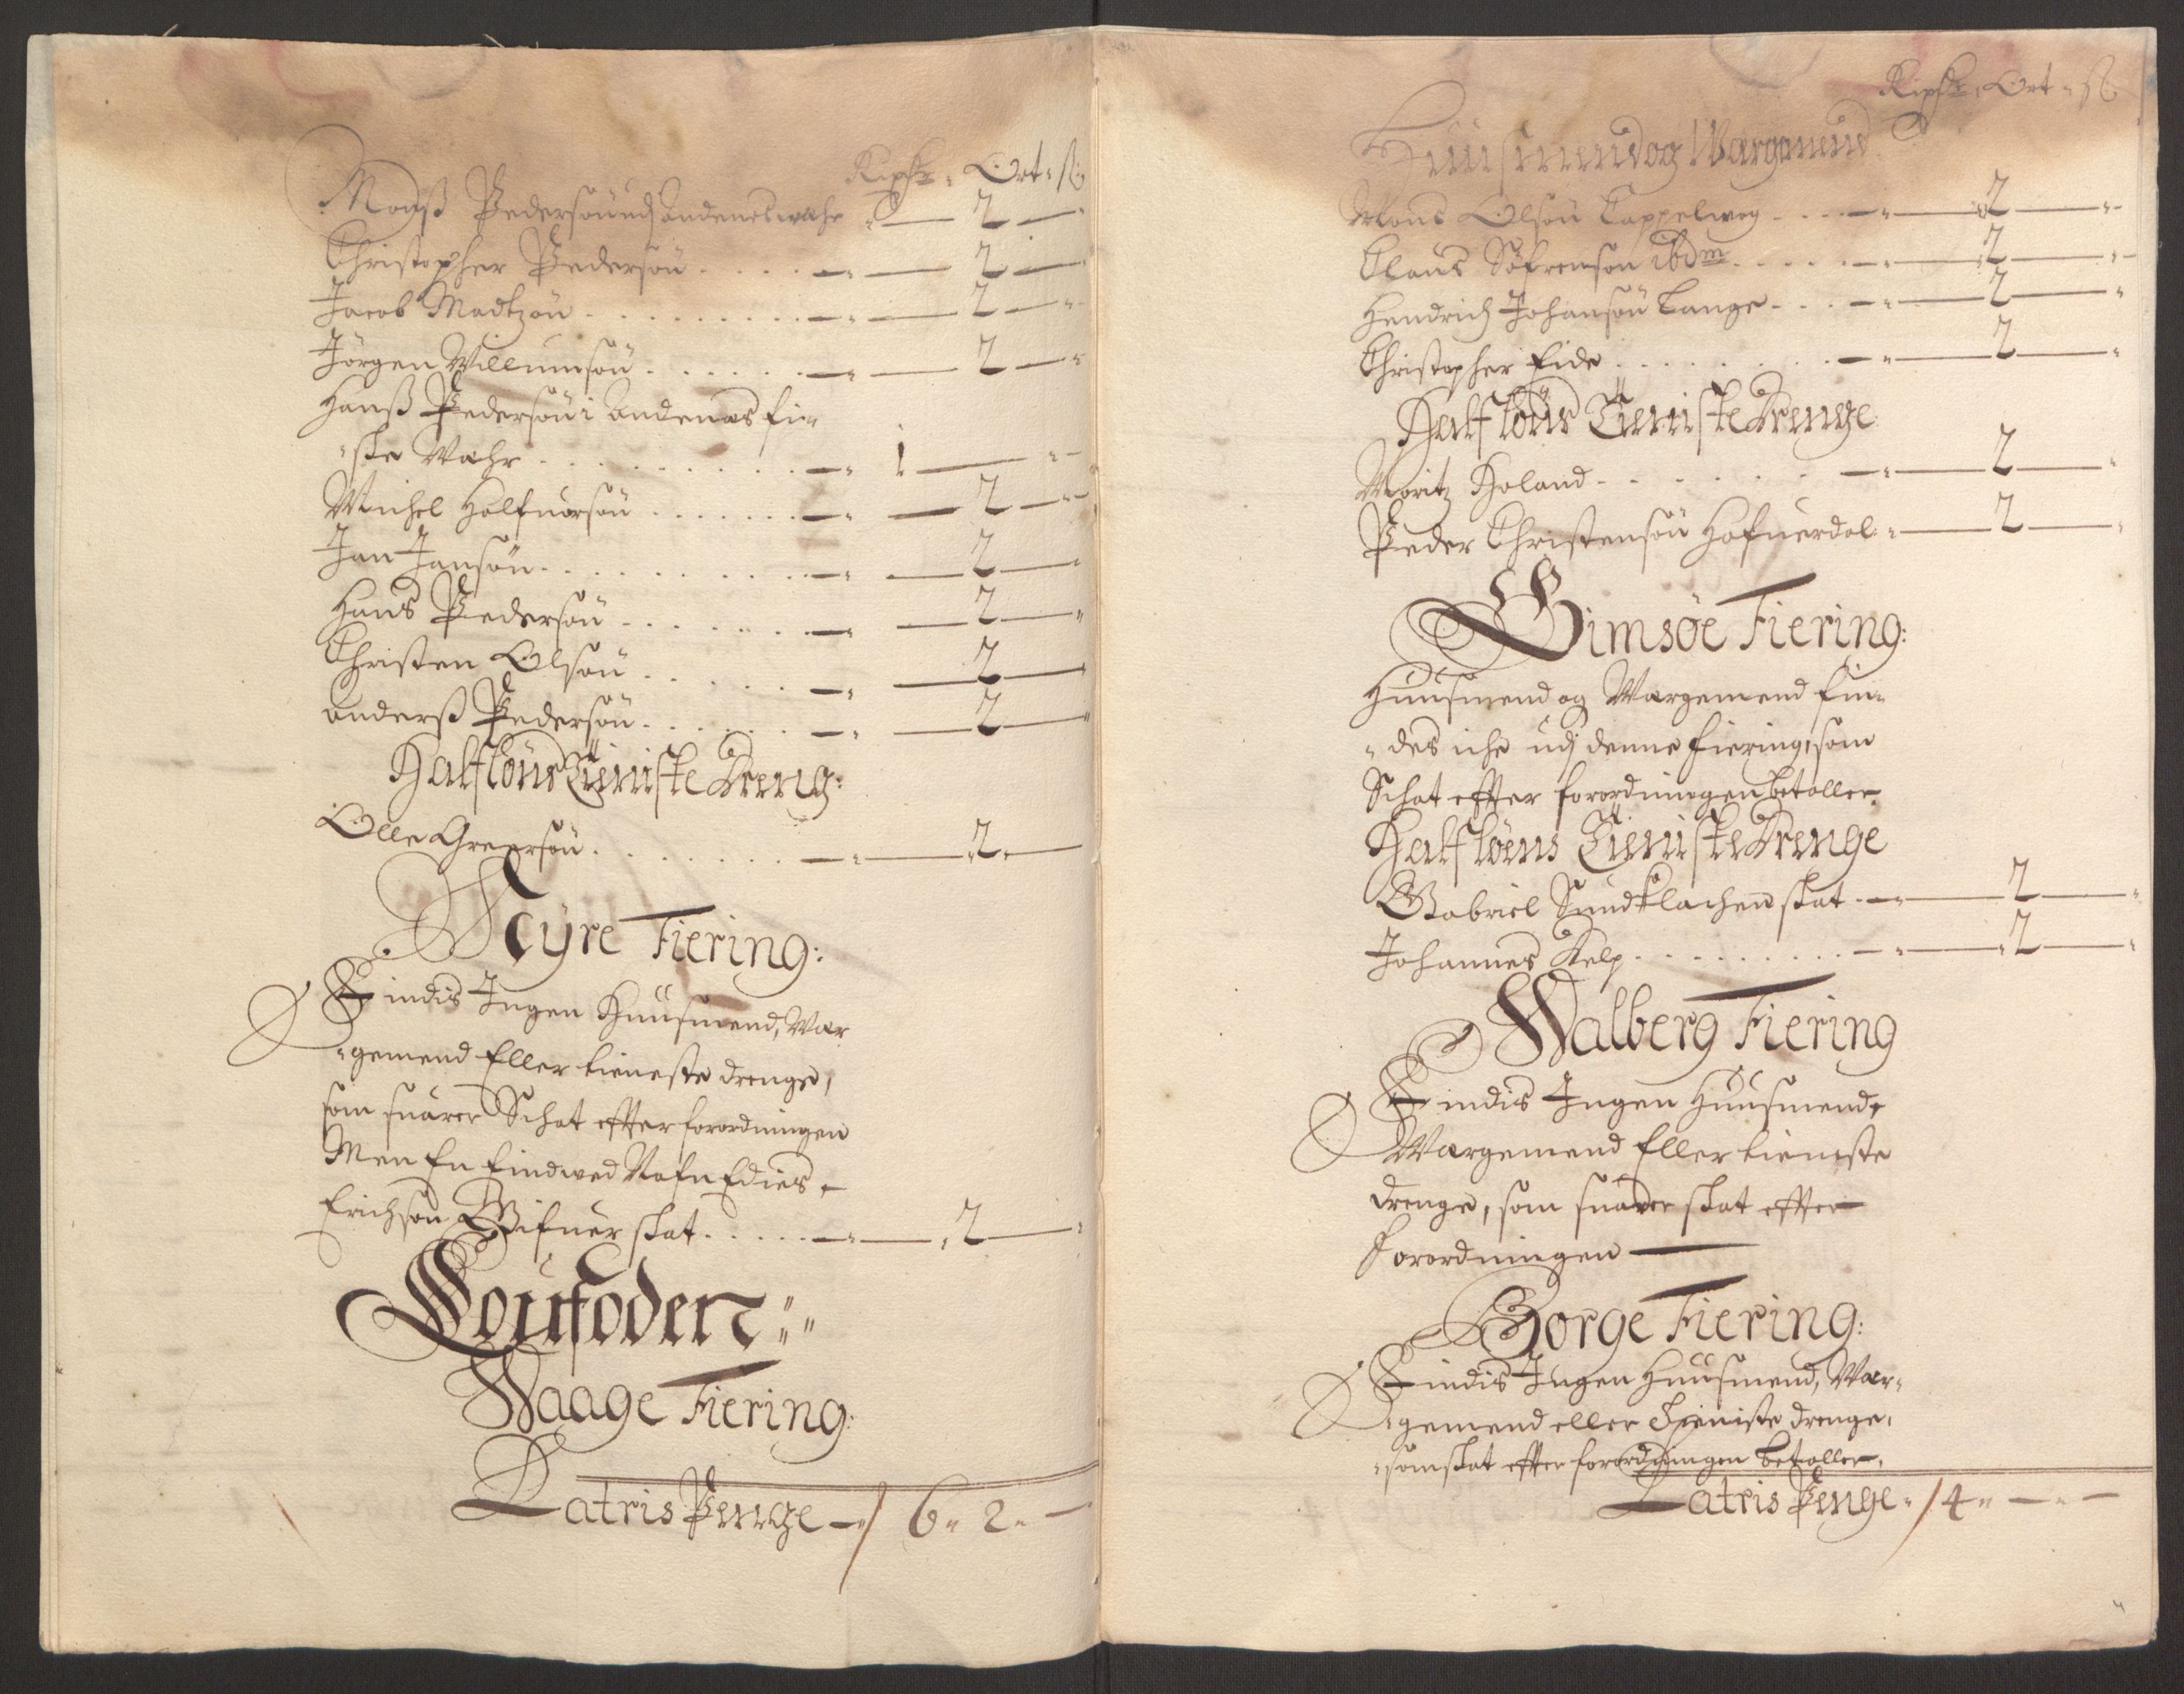 Ripdr. Ort. ß
Monß Pedersøn udj Andenes wahr " — 2 —
Christopher Pedersøn . . . . — " — 2 —
Jacob Madtzøn . . . . — " — 2 — "
Jörgen Willumsøn . . . . — " — 2 — "
Hanß Pedersøn i Andenæs fi-
"ske Wahr . . . . — " 1 — "
Michel Halfuorsøn . . . . — " — 2 — "
Jan Jansøn . . . . — " — 2 — "
Hans Pedersøn . . . . — " — 2 — "
Christen Olsøn . . . . — " — 2 —
Anderß Pedersøn . . . . — " — 2 — "
Halfløns Tieniste Dreng:
Olle Greersøn . . . . — " — 2 —
Øyre Fiering:
Findis Ingen Huusmend, War
"gemend Eller tieneste drenge,
som suarer Schat effter forordningen
Men En Find wed Nafn Edies
Erichsøn Gifuer skat . . . . — " — 2 — "
Loufoden:
Waage Fiering:
Latris Penge — 6 " 2 " —
Ripdr. Ort. ß
Huusmend og Wargemend
Mons Olsøn Cappelwog . . . — " — 2 — "
Claus Söfrensøn ibdm . . . . — " — 2 — "
Hendrich Johansøn Lange . . . — " — 2 — "
Christopher Eide . . . . — " — 2 — "
Halfløns Tieniste Drenge
MoritzHoland . . . . — " — 2 — "
Peder Christensøn Hafuerdal " — 2 — "
Gimsøe Fiering:
Huusmend og Wargemend fin-
"des iche udj denne fiering, som
Schat effter forordningen betaller
Halfløens Tieniste Drenge
Gabriel Sundklachen skat . — " — 2 — "
Johannes Kelp . . . . — " — 2 — "
Walberg Fiering
Findis Ingen Huusmend,
Wargemend Eller tieniste
drenge, som suarer skat effter
Forordningen —
Borge Fiering:
Findis Ingen Huusmend, War-
"gemend eller Tieniste drenge,
"som skat effter forordningen betaller,
Latris Penge " 4 " — " —